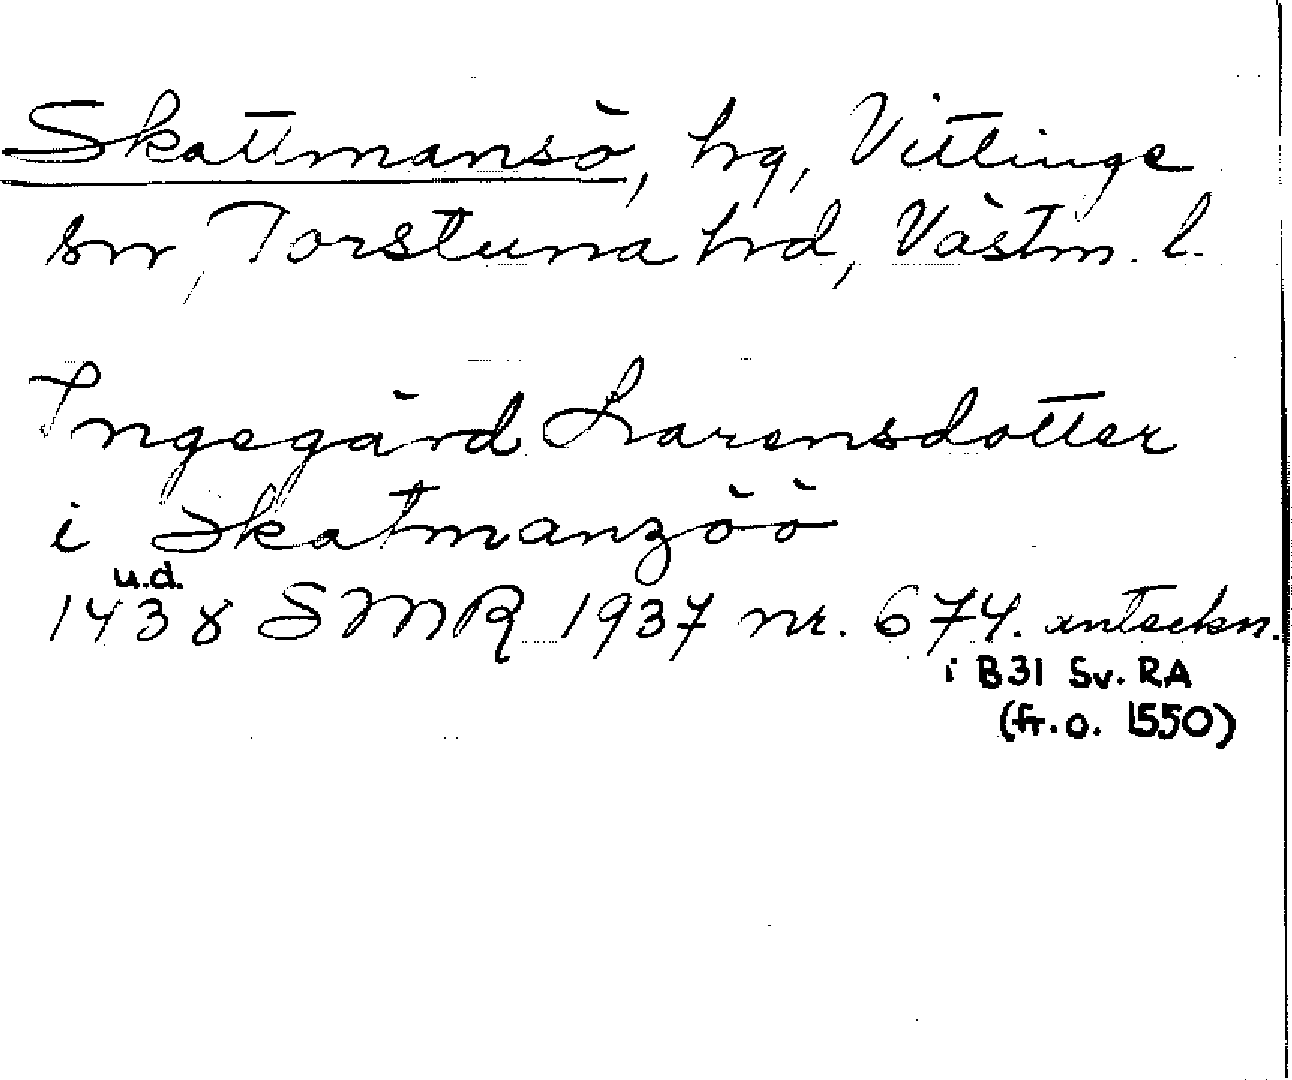 Skattmansö, hrg, Vittinge
sn, Torstuna hrd, Västm. l.
Ingegärd Larensdotter
i Skatmanzöö
u.d.
1438 SMR 1937 nr. 674. anteckn.
i B31 Sv. RA
(fr. o. 1550)